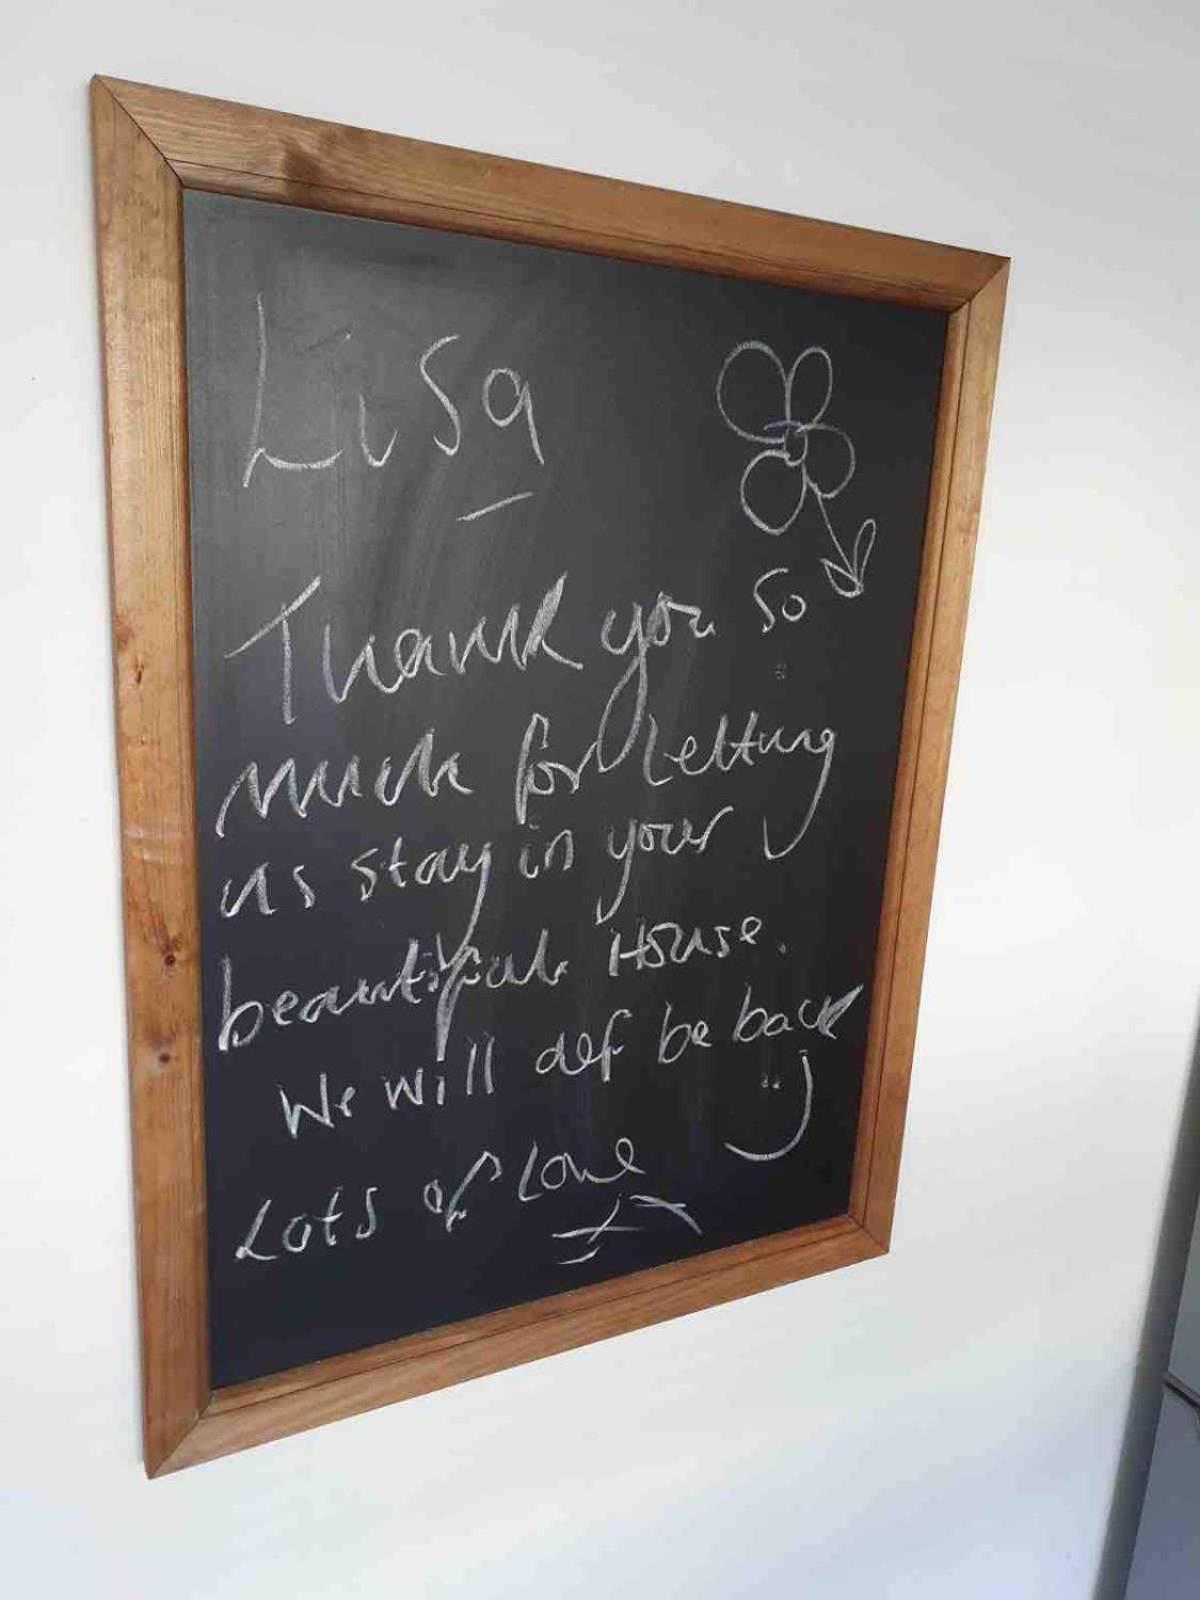 Lisa
Thank you so
much for Letting
us stay in your
beautiful House.
We will def be back
Lots of Love